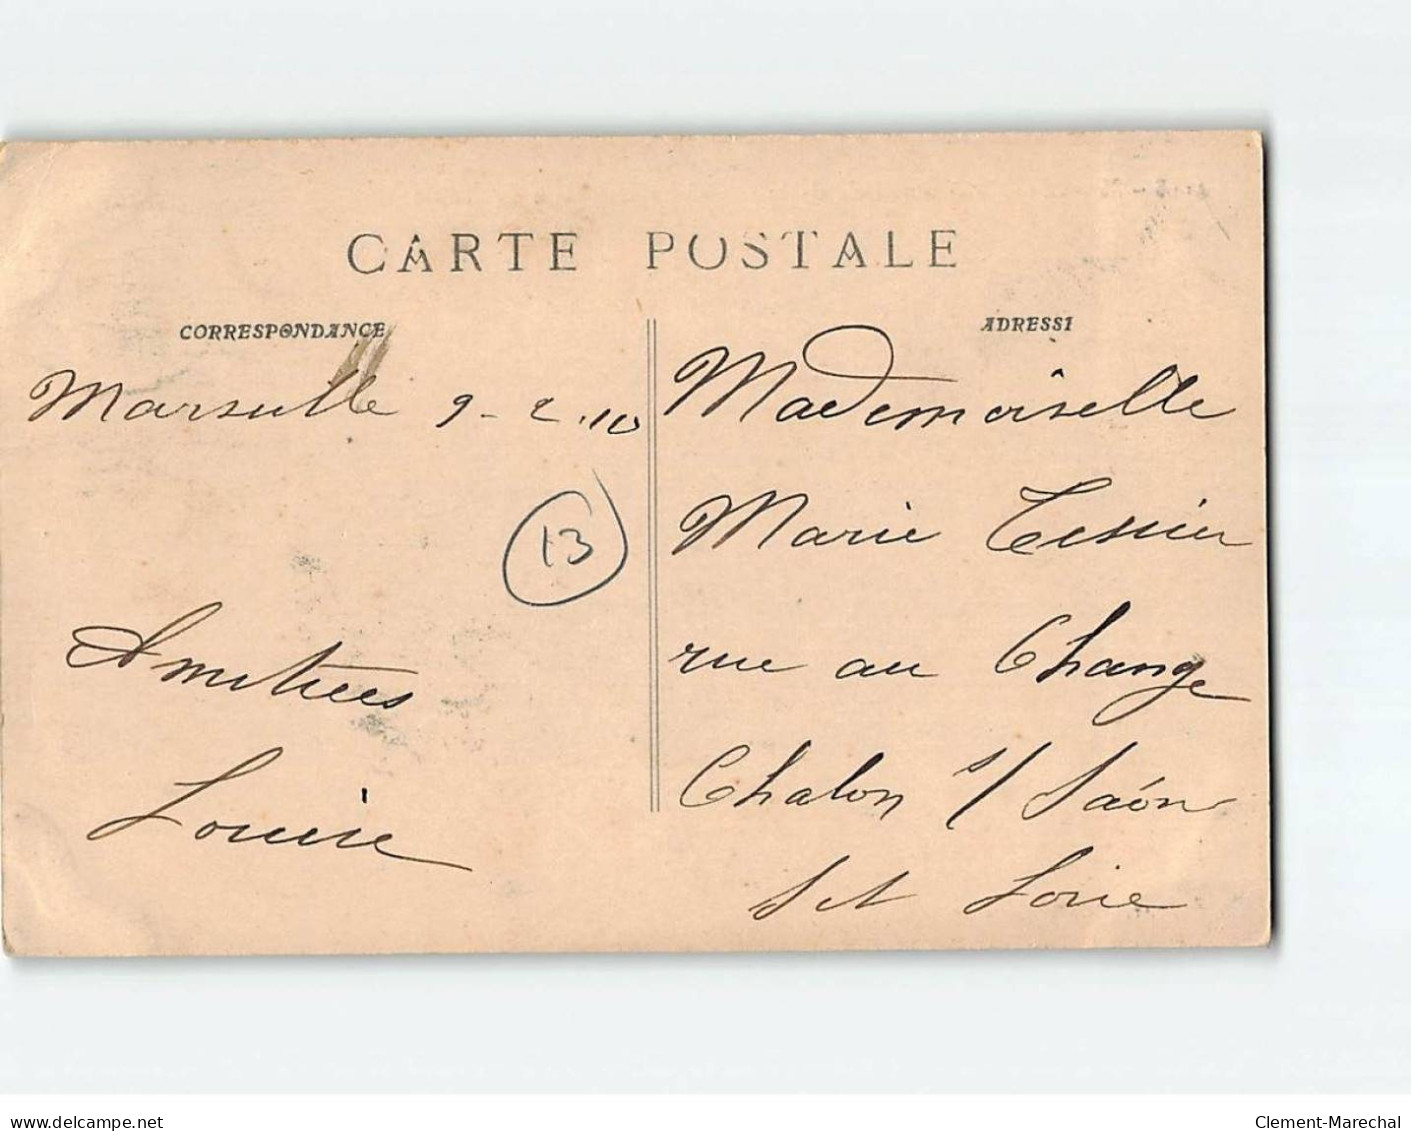 CARTE POSTALE
CORRESPONDANCE
ADRESSE
Marseille 9-2.10
13
Amitiées
Louise
Mademoiselle
Marie Tessier
rue au Change
Chalon s/ Saône
S et Loire
delcampe.net
Clement-Marechal